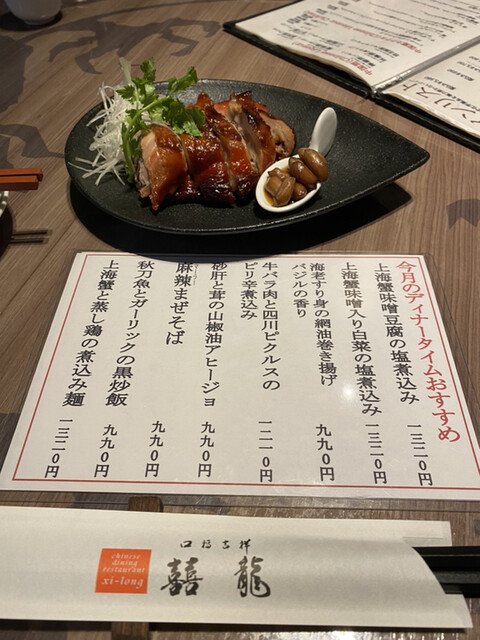 今月のディナータイムおすすめ
上海蟹味噌豆腐の塩煮込み 一三二〇円
上海蟹味噌入り白菜の塩煮込み 一三二〇円
海老すり身の網油巻き揚げ
バジルの香り 九九〇円
牛バラ肉と四川ピクルスの
ピリ辛煮込み 一二一〇円
砂肝と茸の山椒油アヒージョ 九九〇円
麻辣まぜそば 九九〇円
秋刀魚とガーリックの黒炒飯 九九〇円
上海蟹と蒸し鶏の煮込み麺 一三二〇円
口福吉祥
囍龍
chinese
dining
restaurant
xi-long